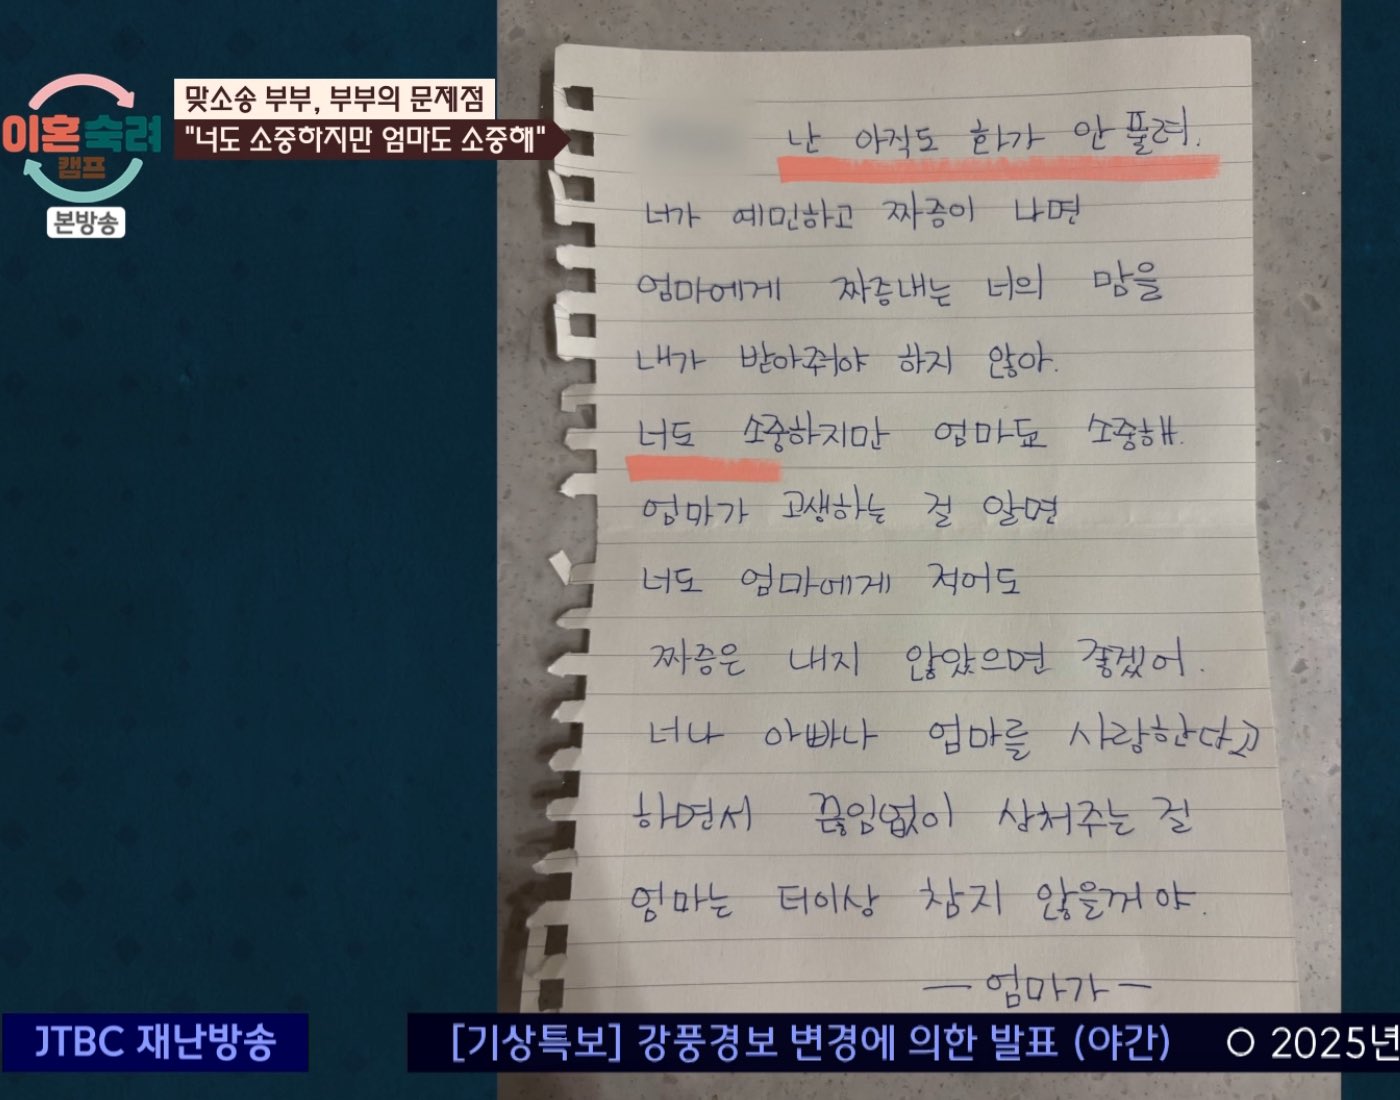 이혼숙려
캠프
본방송
맞소송 부부, 부부의 문제점
"너도 소중하지만 엄마도 소중해"
난 아직도 화가 안 풀려.
너가 예민하고 짜증이 나면
엄마에게 짜증내는 너의 맘을
내가 받아줘야 하지 않아.
너도 소중하지만 엄마됴 소중해.
엄마가 고생하는 걸 알면
너도 엄마에게 적어도
짜증은 내지 않았으면 좋겠어.
너나 아빠나 엄마를 사랑한다고
하면서 끊임없이 상처주는 걸
엄마는 터이상 참지 않을꺼야.
— 엄마가 —
JTBC 재난방송
[기상특보] 강풍경보 변경에 의한 발표 (야간) ○ 2025년